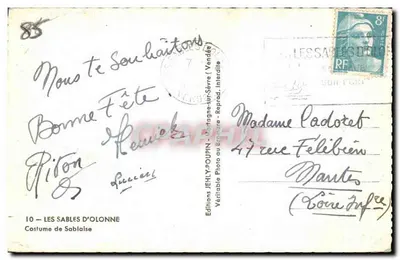 85
Nous te souhaitons
Bonne Fête.
Riton
Lucien
10 — LES SABLES D'OLONNE
Costume de Sablaise
Editions JEHLY-POUPIN - Mortagne-sur-Sèvre (Vendée)
Véritable Photo au Bromure - Reprod. Interdite
LES SABLES D'OLO
8F
RF
Madame Cadoret
47 rue Félibien
Nantes
(Loire Infre)